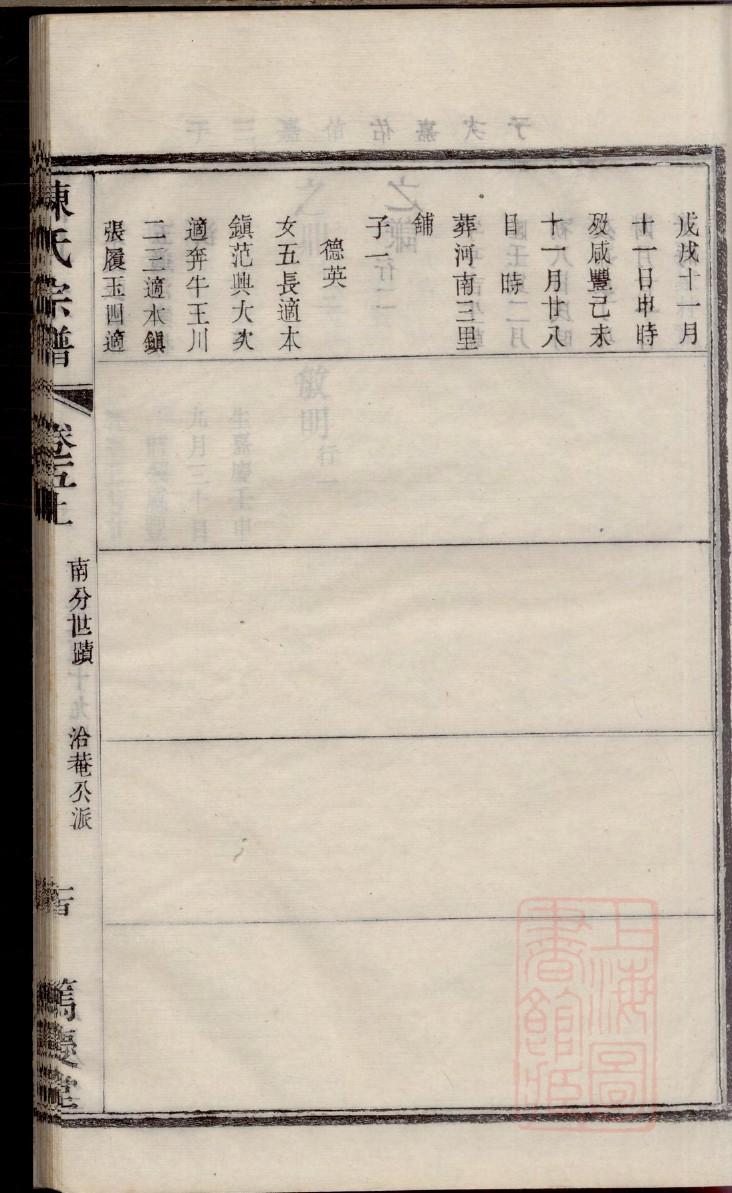 戊戌十一月
十一日申時
歿咸豐己未
十一月廿八
日 時
葬河南三里
舖
子一
德英
女五長適本
鎮范興大次
適奔牛王川
二三適本鎮
張履玉四適
陳氏宗譜
卷五上
南分世蹟
洽菴公派
篤慶堂
上海圖書館藏